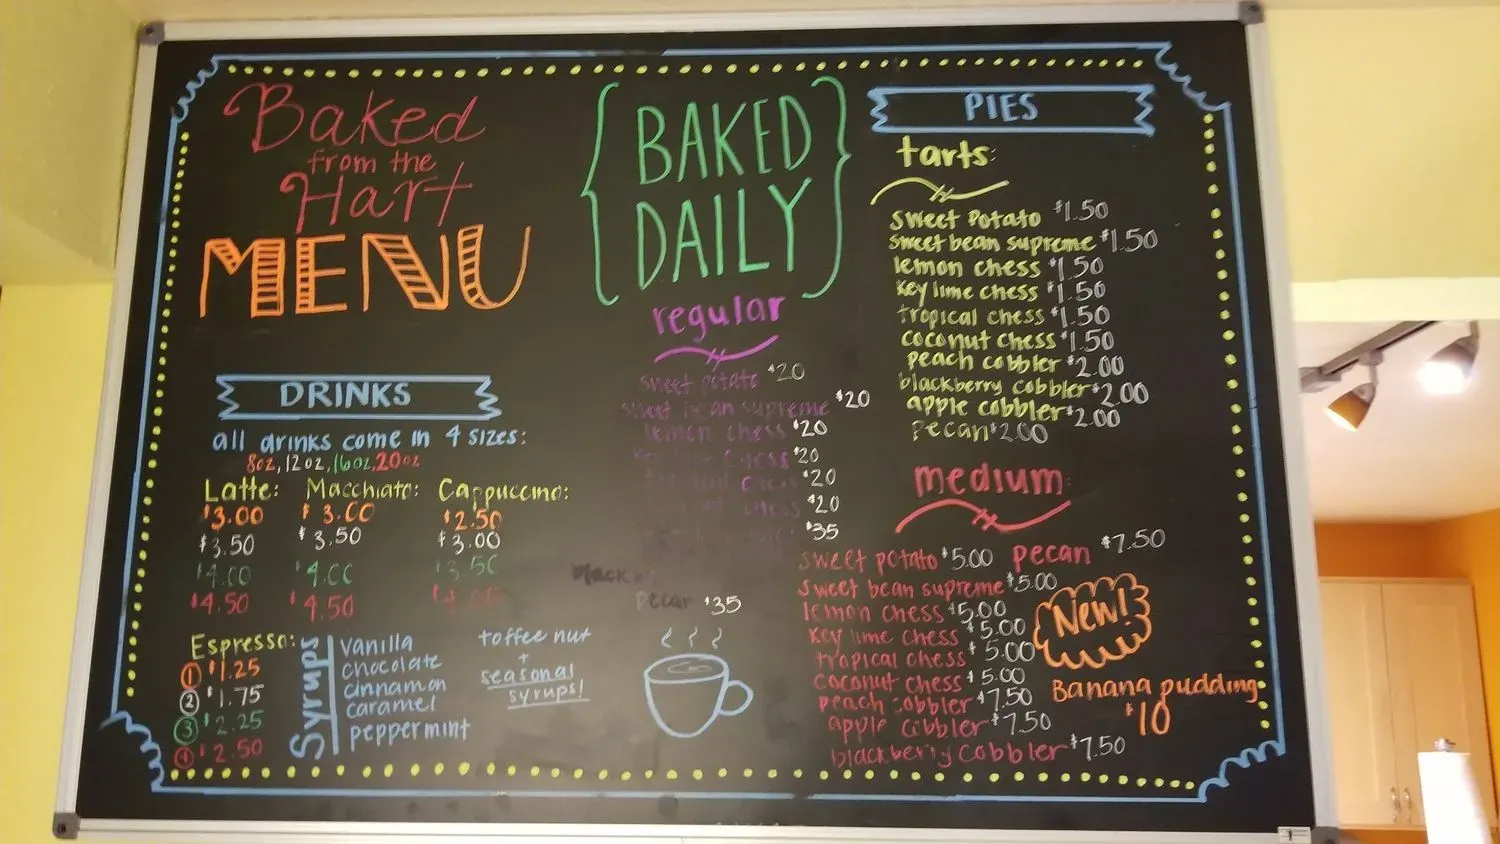 Baked
from the
Hart
MENU
DRINKS
all drinks come in 4 sizes:
8oz, 12oz, 16oz, 20oz
Latte: Macchiato: Cappuccino:
$3.00 $3.00 $2.50
$3.50 $3.50 $3.00
$4.00 $4.00 $3.50
$4.50 $4.50 $4.00
Espresso:
1 $1.25
2 $1.75
3 $2.25
4 $2.50
Syrups
vanilla
chocolate
cinnamon
caramel
peppermint
toffee nut
+
seasonal
syrups!
{BAKED
DAILY}
regular
sweet potato $20
sweet bean supreme $20
lemon chess $20
key lime chess $20
chess $20
chess $20
$35
pecan $35
PIES
tarts:
sweet potato $1.50
sweet bean supreme $1.50
lemon chess $1.50
key lime chess $1.50
tropical chess $1.50
coconut chess $1.50
peach cobbler $2.00
blackberry cobbler $2.00
apple cobbler $2.00
pecan $2.00
medium:
sweet potato $5.00 pecan $7.50
sweet bean supreme $5.00
lemon chess $5.00
key lime chess $5.00
tropical chess $5.00
coconut chess $5.00
peach cobbler $7.50
apple cobbler $7.50
blackberry cobbler $7.50
New!
Banana pudding
$10